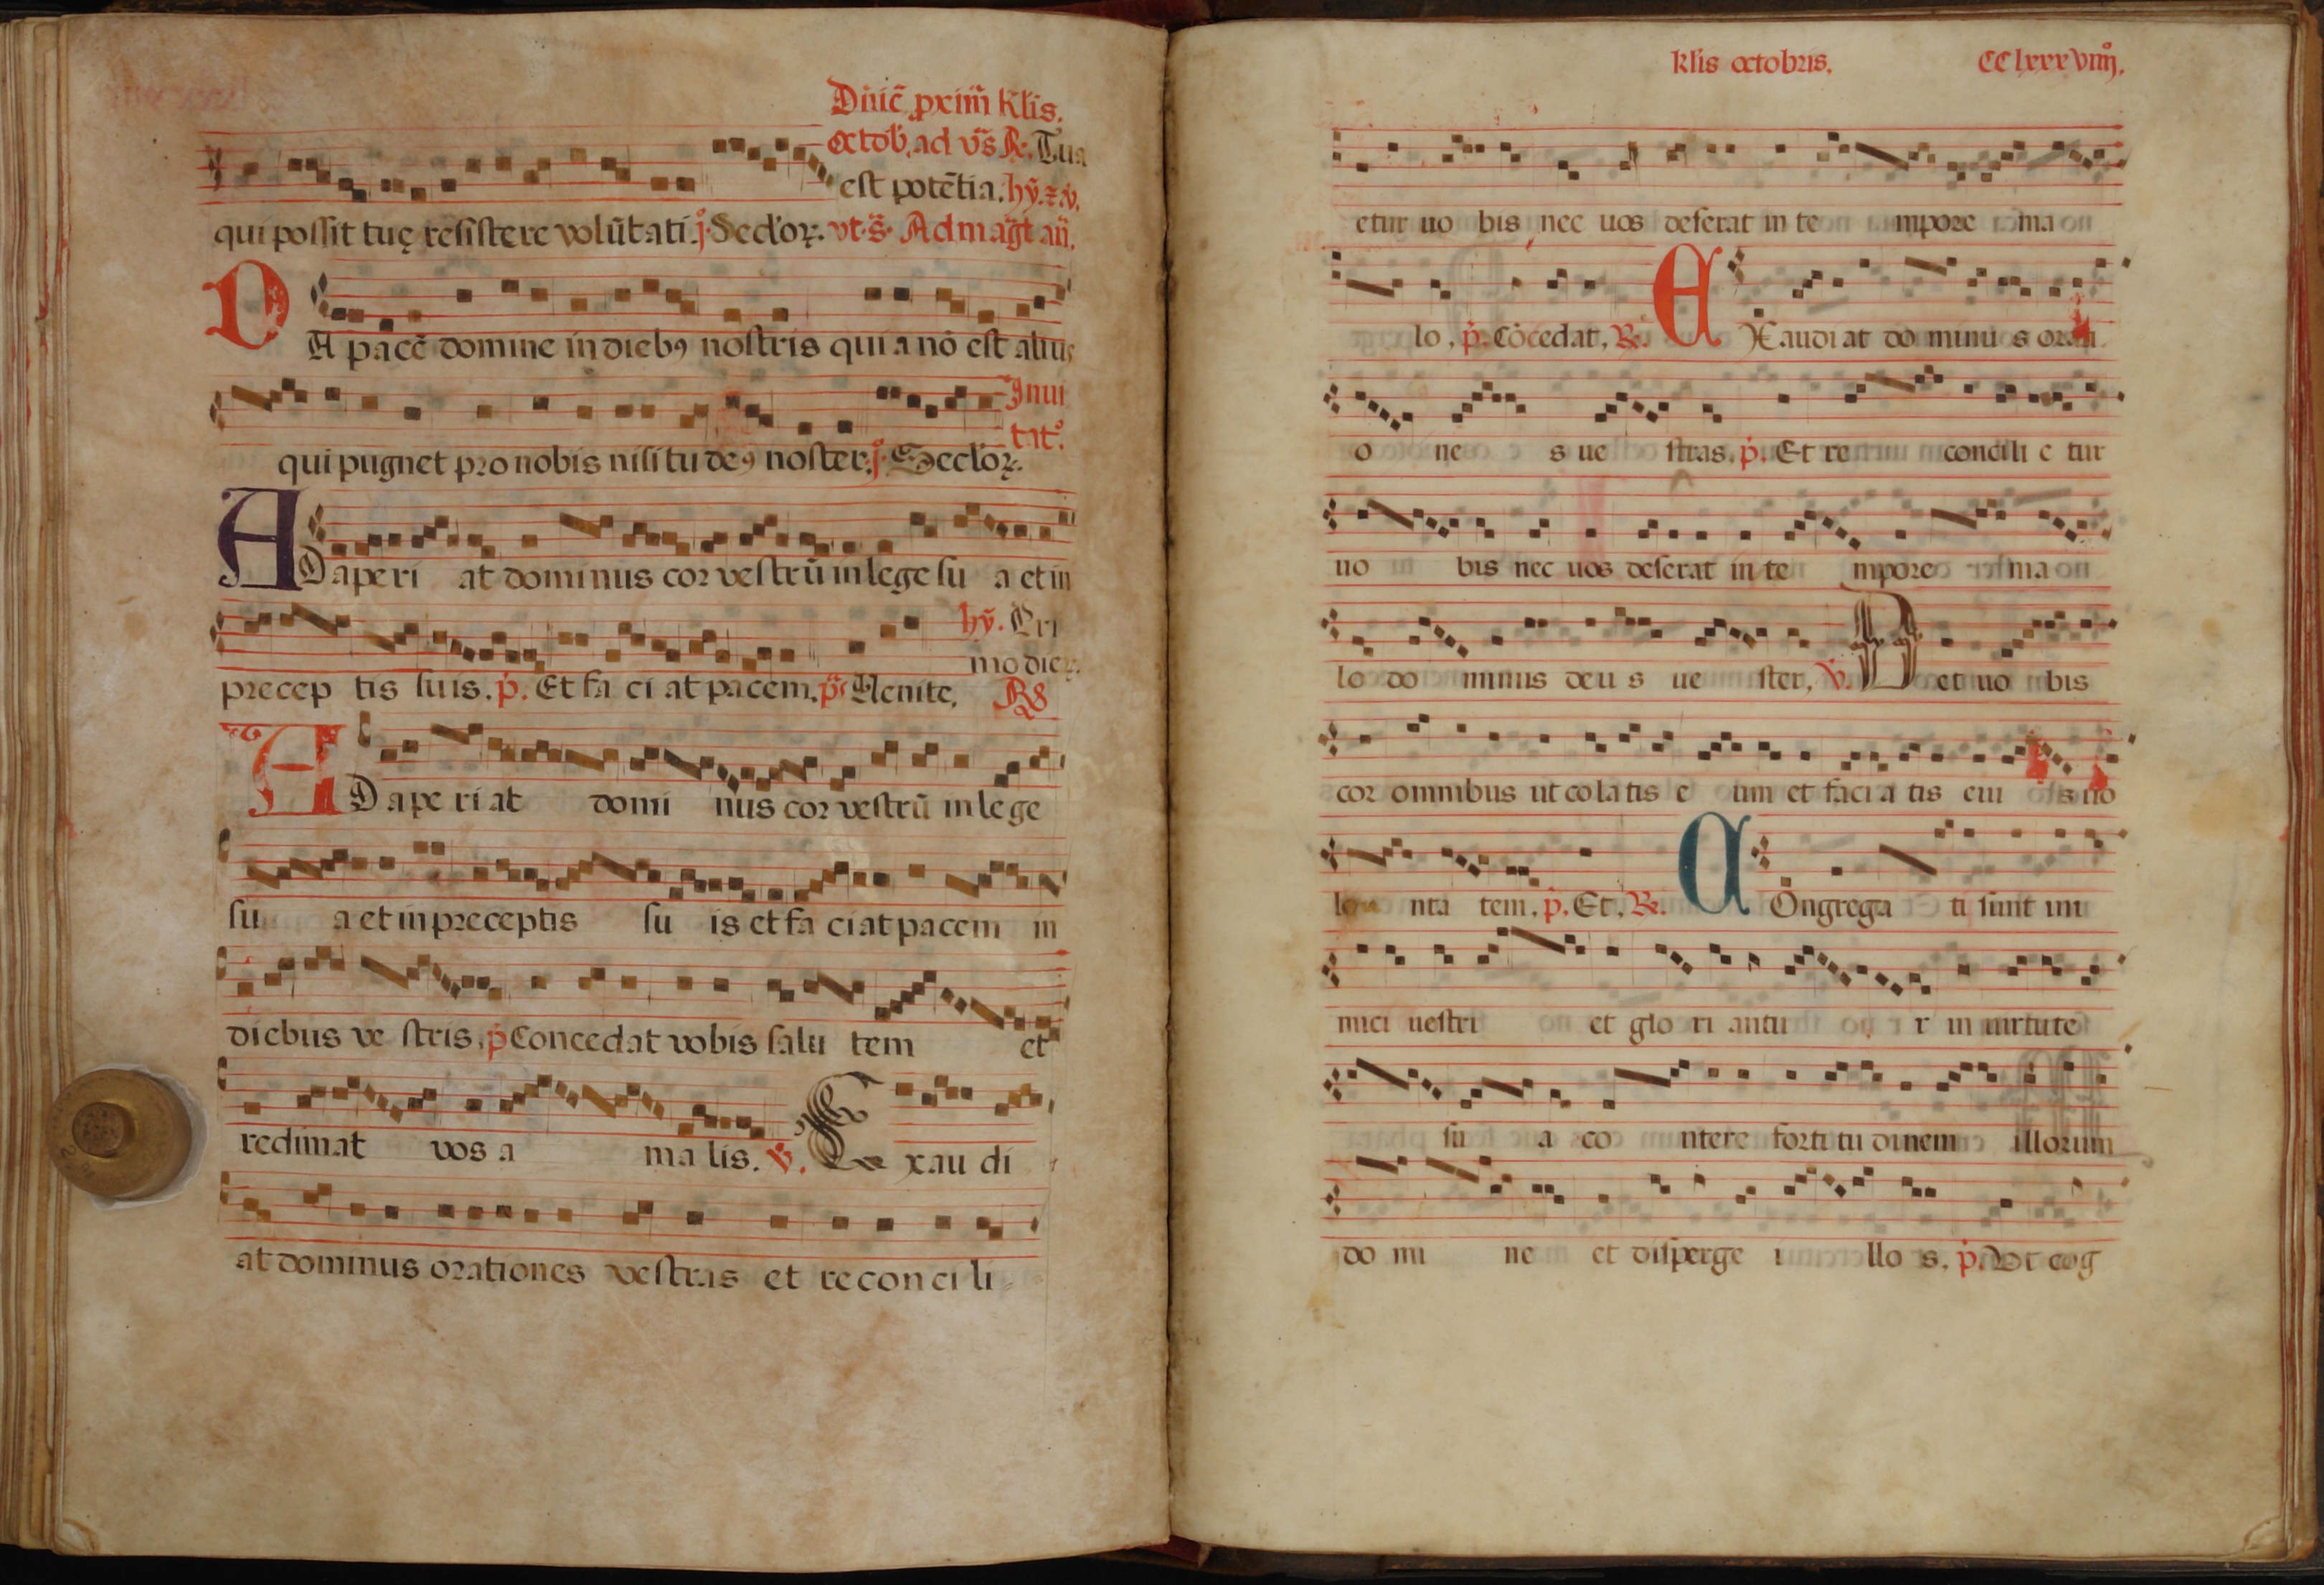 Dnic̄ .pxim̄ kl̄is.
octob̄. ad vs̄ R. Tua
est potētia. hȳ. ⁊ v̄.
qui possit tuę resistere volūtati. j. Seclorꝝ. vt. s̄. Ad maḡt an̄.
DA pacē domine in diebꝯ nostris quia nō est alius
Inui
tat̊.
qui pugnet pro nobis nisi tu deꝯ noster. j. Seclorꝝ.
ADaperi at dominus cor vestrū in lege su a et in
hȳ. Pri
mo dierꝝ.
precep tis suis. p̄. Et fa ci at pacem. p̄s Uenite. R
ADape ri at domi nus cor vestrū in le ge
su a et in preceptis su is et fa ciat pacem in
diebus ve stris. p̄ Concedat vobis salu tem et
redimat vos a ma lis. v. Exau di
at dominus orationes vestras et reconci li
klis octobris. CClxxxviiij.
etur uo bis nec uos deserat in te mpore ma
lo. p̄. Cōcedat. R. EXaudi at do minu s orati
o ne s ue stras. p̄. Et re concili e tur
uo bis nec uos deserat in te mpore ma
lo do minus deu s ue ster. v. Det uo bis
cor omnibus ut colatis e um et faci a tis eiu s uo
lu nta tem. p̄. Et. R. COngrega ti sunt ini
mici uestri et glo ri antu r in uirtute
su a co ntere forti tu dinem illorum
do mi ne et disperge i llo s. p̄. Ut cog